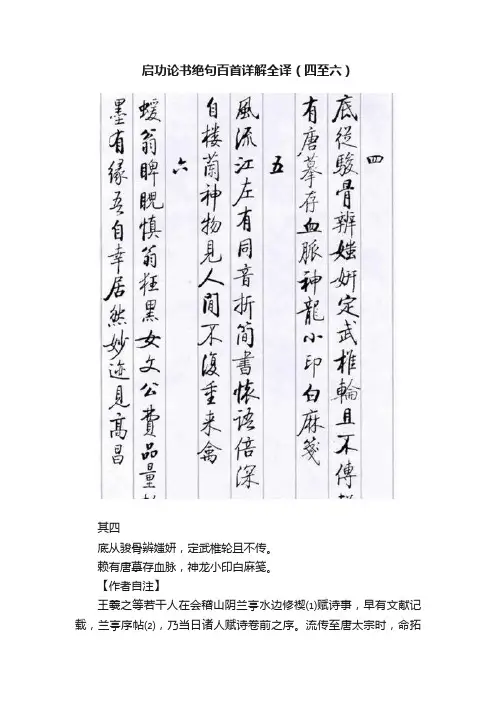 启功论书绝句百首详解全译（四至六）
四
底從駿骨辨媸妍定武椎輪且不傳
有唐摹存血脈神龍小印白麻箋
五
風流江左有同音折簡書懷語倍深
自樓蘭神物見人間不復重來禽
六
蝯翁睥睨慎翁狂黑女文公費品量
墨有緣吾自幸居然妙迹見高昌
其四
底从骏骨辨媸妍，定武椎轮且不传。
赖有唐摹存血脉，神龙小印白麻笺。
【作者自注】
王羲之等若干人在会稽山阴兰亭水边修禊⑴赋诗事，早有文献记
载，兰亭序帖⑵，乃当日诸人赋诗卷前之序。流传至唐太宗时，命拓